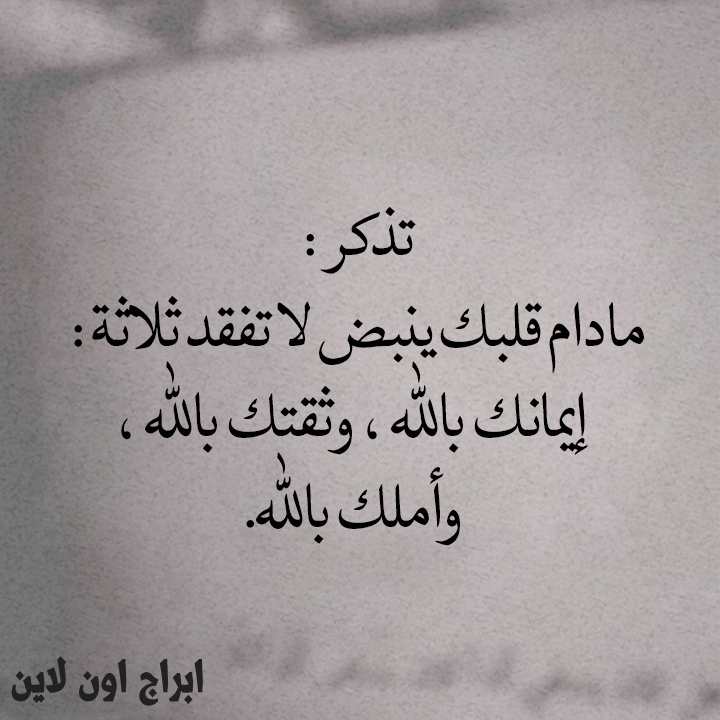 تذكر :
مادام قلبك ينبض لا تفقد ثلاثة :
إيمانك بالله ، وثقتك بالله ،
وأملك بالله.
ابراج اون لاين